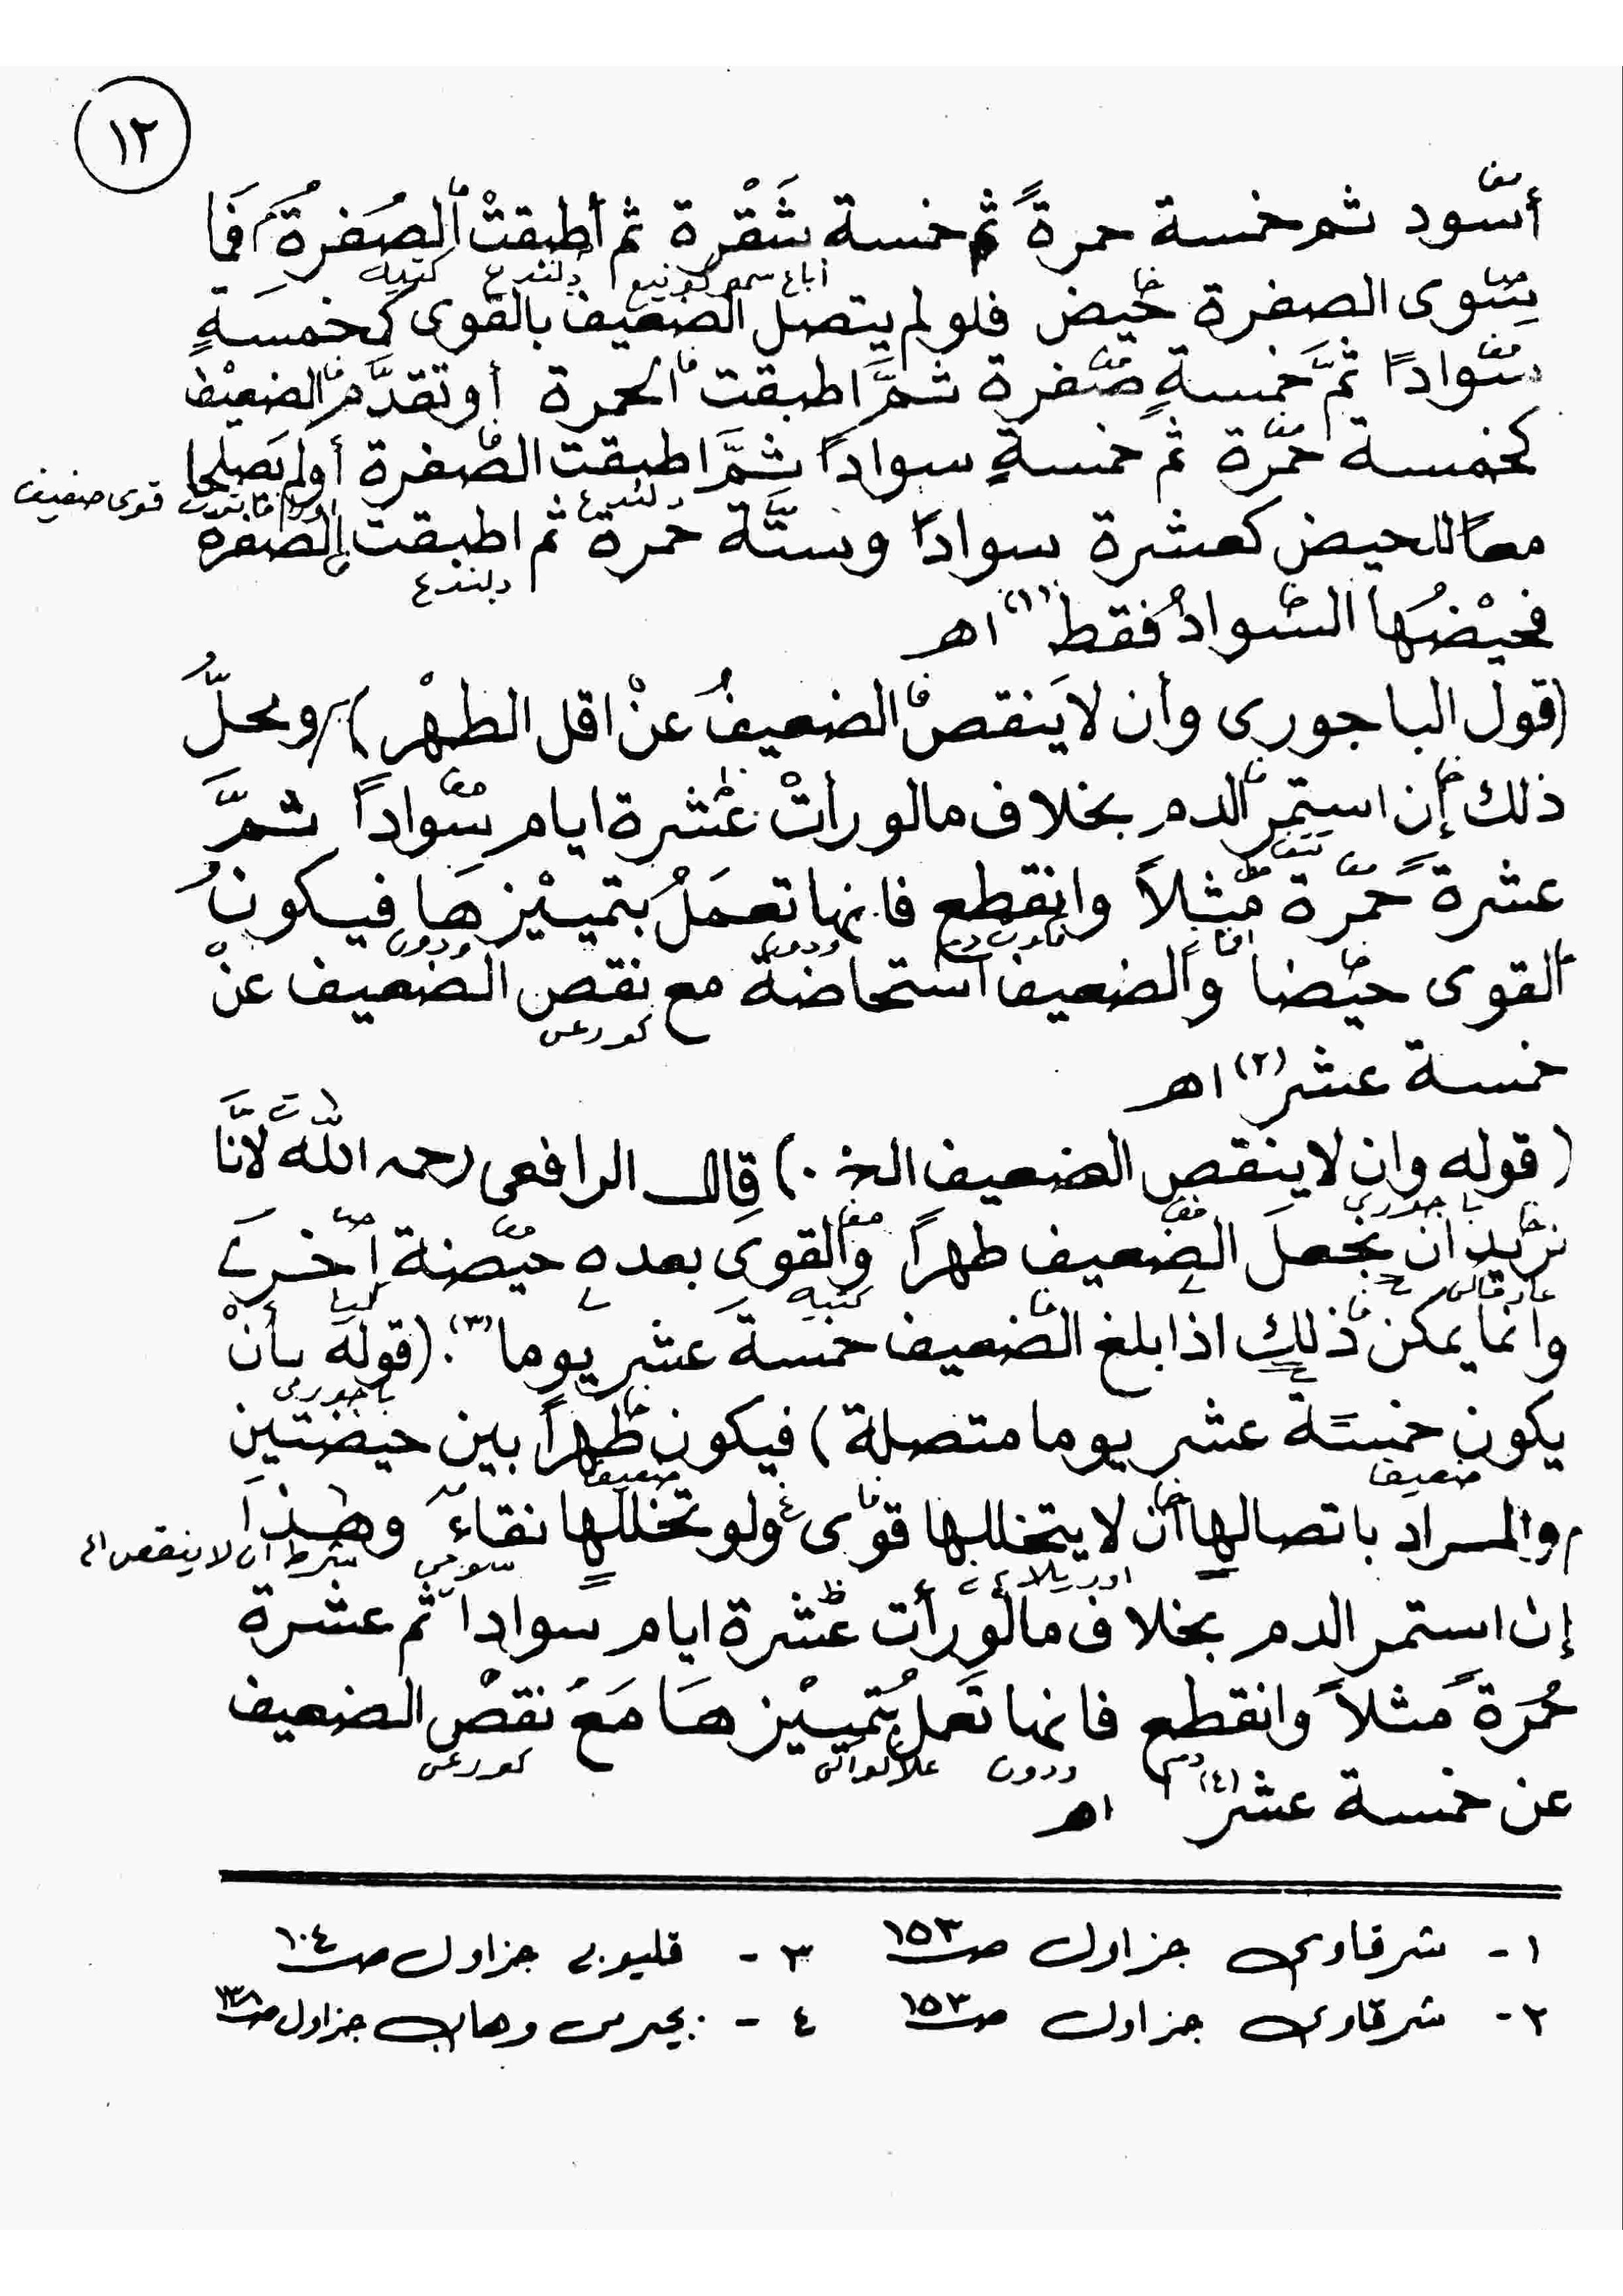 ١٢
أسود ثم خمسة حمرةً ثم خمسة شَقْرة ثم أطبقتْ الصُفرةُ فَما
سِوى الصفرة حيض فلو لم يتصل الضعيف بالقوى كخمسةٍ
سوادًا ثمَّ خمسةٍ صفرة ثمَّ اطبقت الحمرة أو تقدَّم الضعيف
كخمسة حمرة ثم خمسةٍ سوادًا ثمَّ اطبقت الصفرة أولم يَصلحا
معًا للحيض كعشرة سوادًا وستَّة حمرة ثم اطبقت الصفرة
فحيْضُها السوادُ فقط (١) اهـ
(قول الباجورى وأن لا يَنقصْ الضعيفُ عنْ اقل الطهْر) ومحلُّ
ذلك إن استمر الدم بخلاف مالو رأتْ عشرة ايام سوادًا ثمَّ
عشرة حمرةً مثلاً وانقطع فانها تعمَلُ بتمييْزها فيكونُ
القوى حيضا والضعيف استحاضة مع نقص الضعيف عنْ
خمسة عشر (٢) اهـ
(قوله وان لا ينقص الضعيف الخ.) قال الرافعى رحمه الله لأنَّا
نريد ان نجعلَ الضعيف طهراً والقوى بعده حيضة اخرى
وانما يمكن ذلك اذا بلغ الضعيف خمسة عشر يوما (٣). (قوله بأنْ
يكون خمسة عشر يوما متصلة) فيكون طهراً بين حيضتين
والمراد باتصالها أن لا يتخللها قوى ولو تخللها نقاء وهذا
إن استمر الدم بخلاف مالو رأت عشرة ايام سوادا ثم عشرة
حُمرَةً مثلاً وانقطع فانها تعملُ بتمييْزها مَعَ نقصْ الضعيف
عن خمسة عشر (٤) اهـ
١- شرقاوى جزاول صـ ١٥٣ ٣- قليوبى جزاول صـ ١٠٤
٢- شرقاوى جزاول صـ ١٥٣ ٤- بجيرمى وهاب جزاول صـ